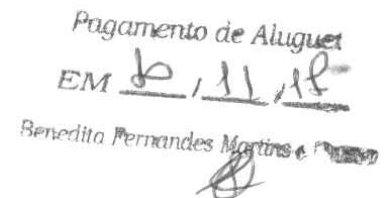 Pagamento de Aluguel
EM , 11 ,
Benedito Fernandes Martins e